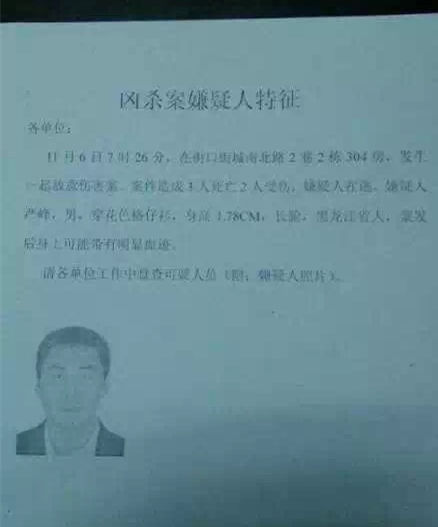 凶杀案嫌疑人特征
各单位：
11月6日7时26分，在街口街城南北路2巷2栋304房，发生
一起故意伤害案。案件造成3人死亡2人受伤，嫌疑人在逃。嫌疑人
严峰，男，穿花色格仔衫，身高1.78CM，长脸，黑龙江省人，案发
后身上可能带有明显血迹。
请各单位工作中盘查可疑人员（附：嫌疑人照片）。